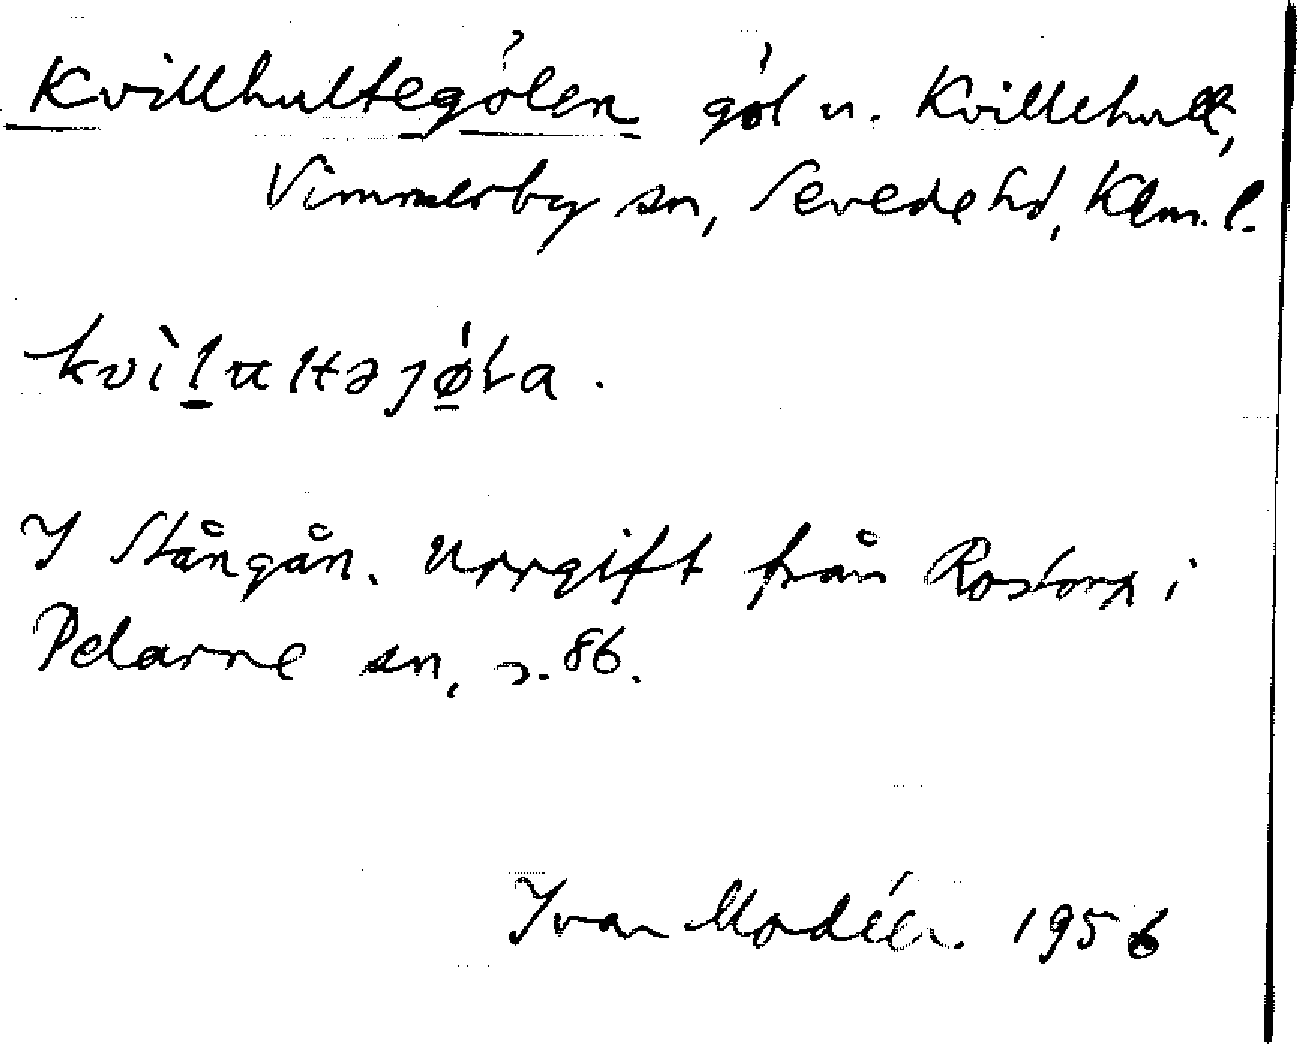 Kvillhultegölen göl u. Kvillehult,
Vimmerby sn, Sevede hd, Klm. l.
kvìlultəjø̀la.
I Stångån. Uppgift från Rostorp i
Pelarne sn, s. 86.
Ivar Modéer. 1956